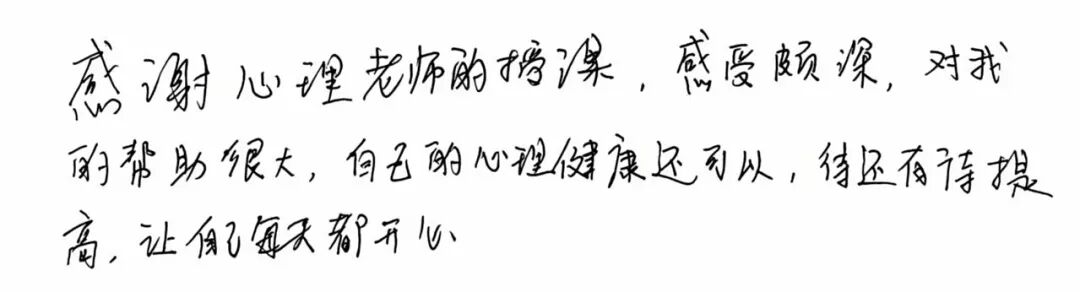 感谢心理老师的授课，感受颇深，对我
的帮助很大，自己的心理健康还可以，待还有待提
高，让自己每天都开心